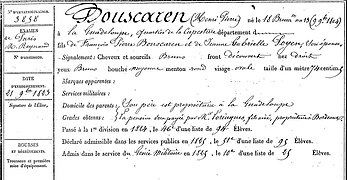 N° D'IMMATRICULATION
3858
EXAMEN
de Paris
M. Reynaud
DATE
21 9bre 1843
Signature de l'Élève.
BOURSES
ET
Trousseau et première
mise d'équipement.
Bouscaren (Henri Pierre) né le 18 Brum an 13 (9 9bre 18
à la Guadeloupe, quartier de la Capesterre département
fils de François Pierre Bouscaren et de Jeanne Gabrielle son épouse
Signalement: Cheveux et sourcils Bruns front découvert nez droit
yeux Bruns bouche moyenne menton rond visage ovale taille d'un mètre 74 centim
Marques apparentes:
Services militaires:
Domicile des parents: Son père est propriétaire à la Guadeloupe
Grades obtenus: La pension sera payée par M. fils aîné, propriétaire Bordeaux
Passé à la 1re division en 1824 le 46e d'une liste de Élèves.
Déclaré admissible dans les services publics en 1825 le 51e d'une liste de 95 Élèves.
Admis dans le service du Génie Militaire en 1825, le 10e d'une liste de Élèves.